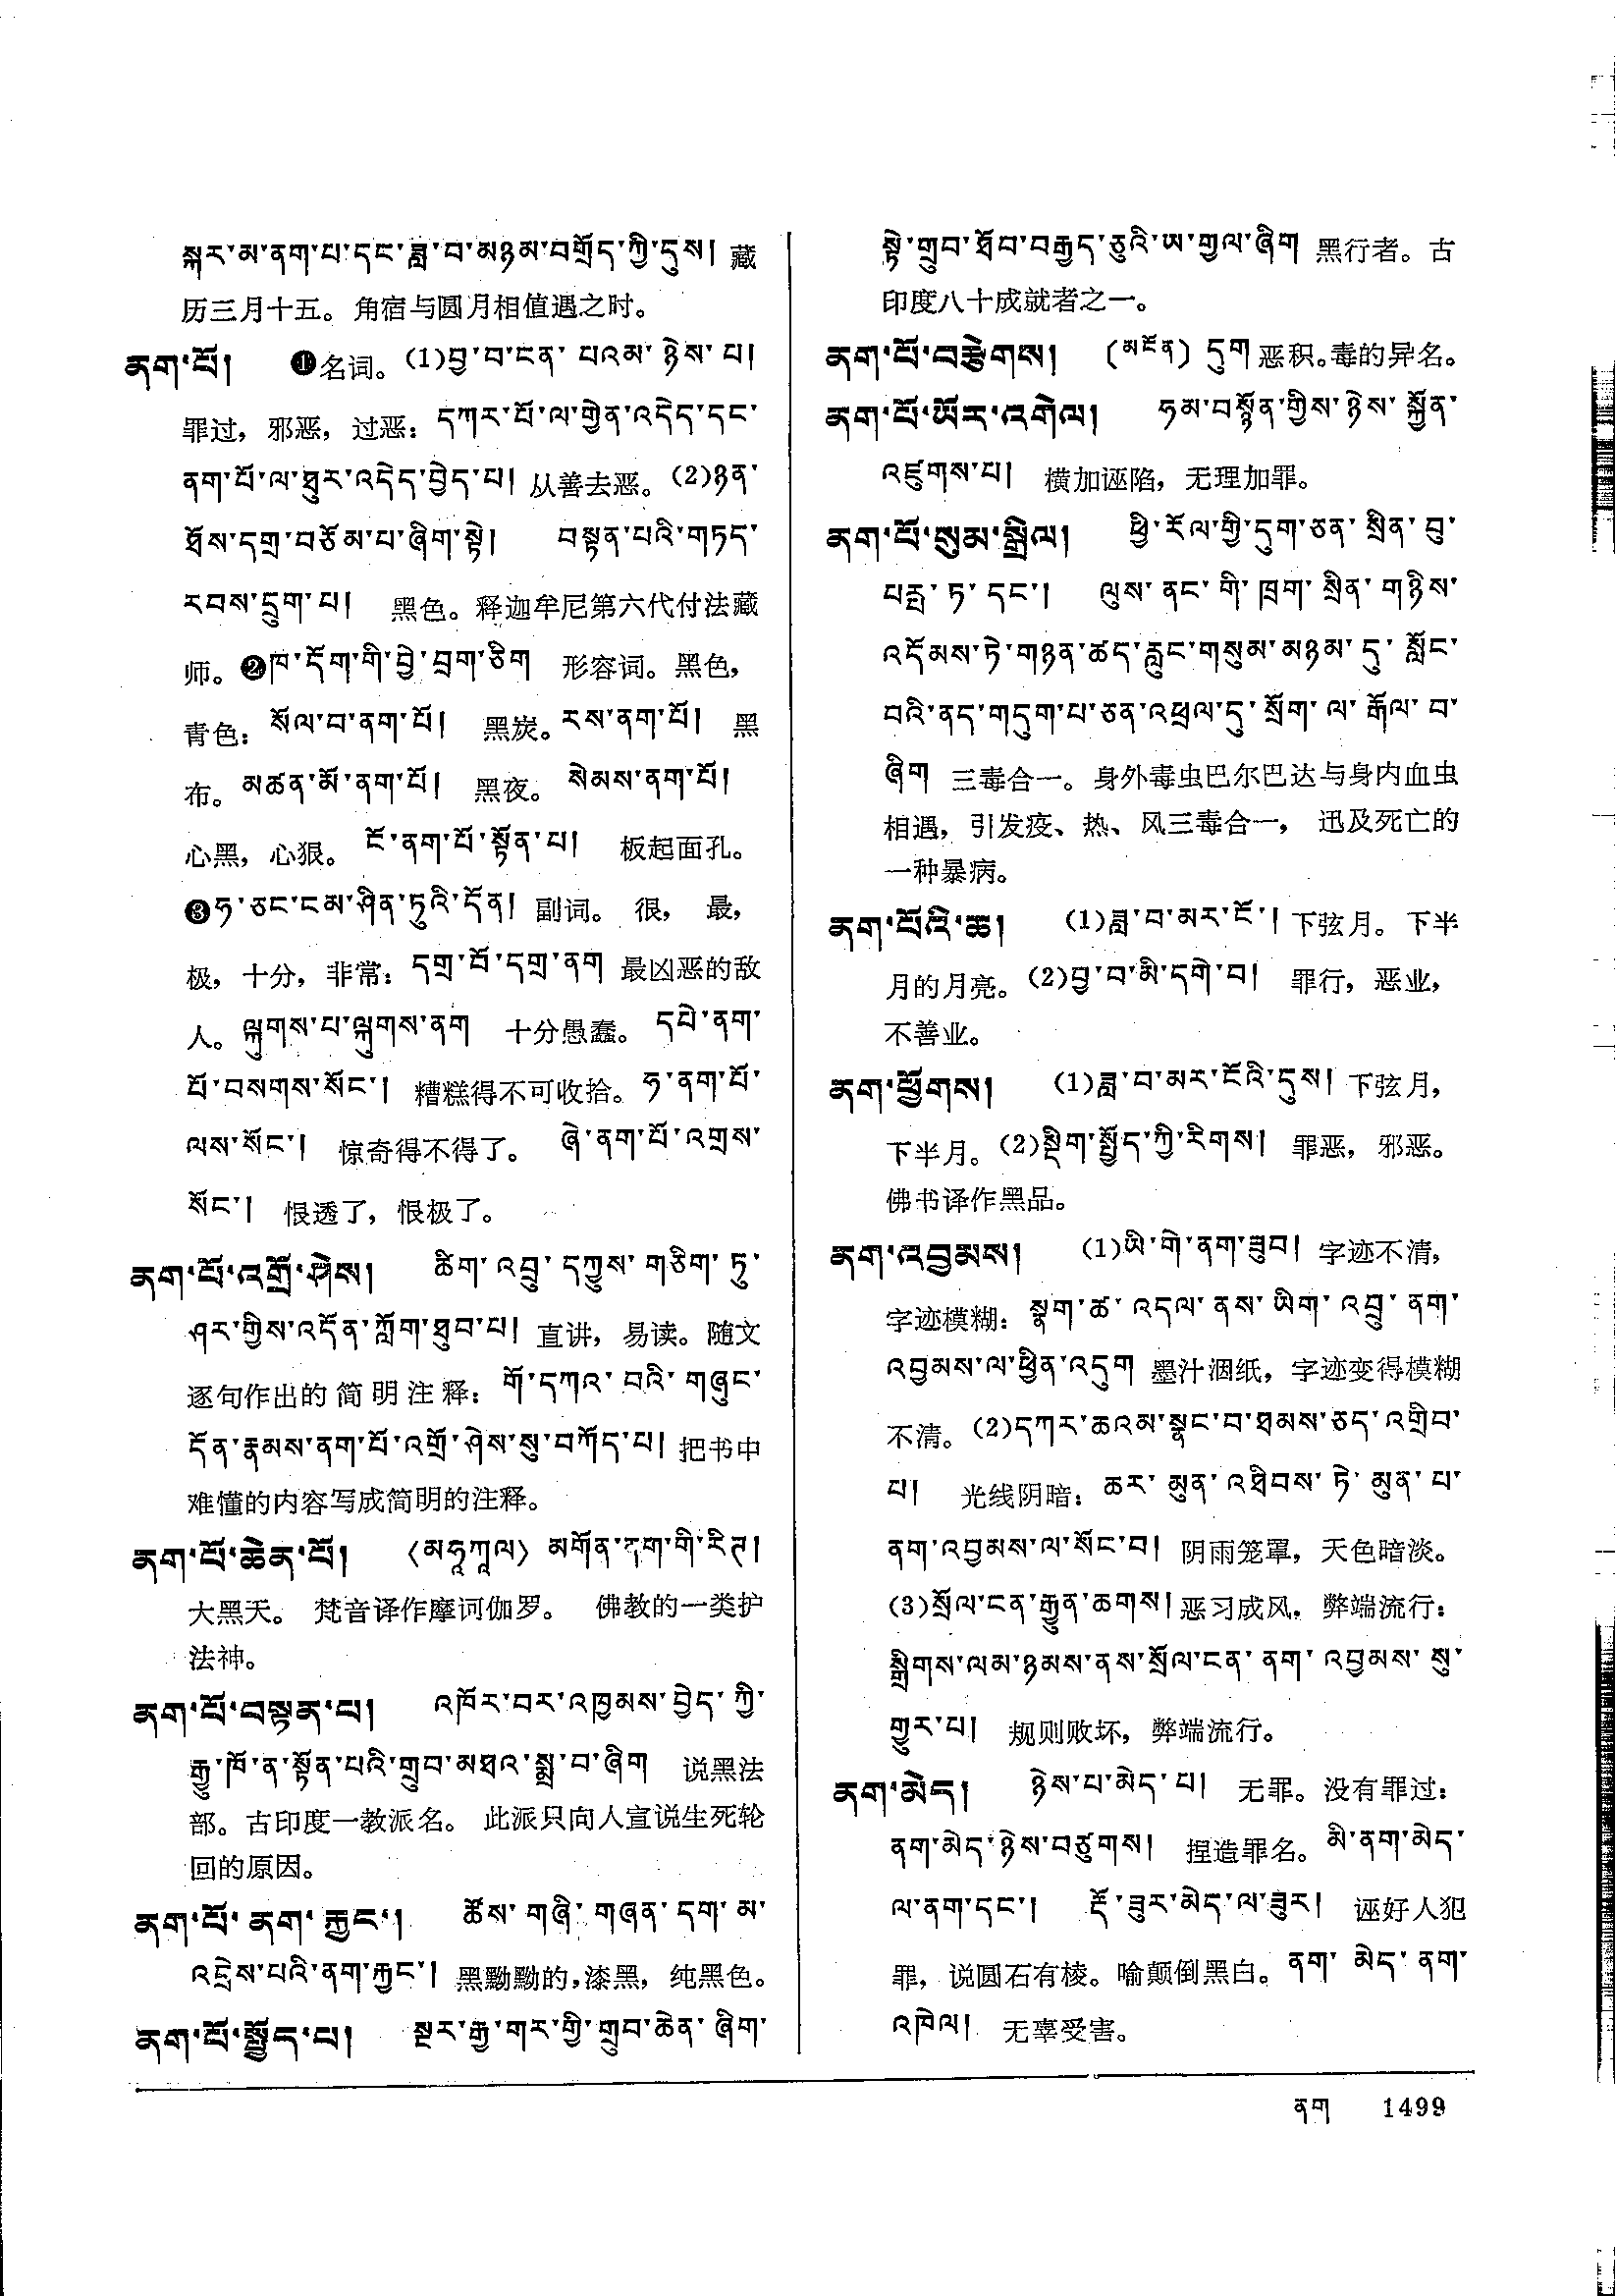 སྐར་མ་ནག་པ་དང་ཟླ་བ་མཉམ་བགྲོད་ཀྱི་དུས། 藏
历三月十五。角宿与圆月相值遇之时。
ནག་པོ། ❶名词。(1)བྱ་བ་ངན་པའམ་ཉེས་པ།
罪过，邪恶，过恶：དཀར་པོ་ལ་གྱེན་འདེད་དང་
ནག་པོ་ལ་ཐུར་འདེད་བྱེད་པ། 从善去恶。(2)ཉན་
ཐོས་དགྲ་བཅོམ་པ་ཞིག་སྟེ། བསྟན་པའི་གཏད་
རབས་དྲུག་པ། 黑色。释迦牟尼第六代付法藏
师。❷ཁ་དོག་གི་བྱེ་བྲག་ཅིག 形容词。黑色，
青色：སོལ་བ་ནག་པོ། 黑炭。རས་ནག་པོ། 黑
布。མཚན་མོ་ནག་པོ། 黑夜。སེམས་ནག་པོ།
心黑，心狠。ངོ་ནག་པོ་སྟོན་པ། 板起面孔。
❸ཧ་ཅང་ངམ་ཤིན་ཏུའི་དོན། 副词。很，最，
极，十分，非常：དགྲ་བོ་དགྲ་ནག 最凶恶的敌
人。ལྐུགས་པ་ལྐུགས་ནག 十分愚蠢。དཔེ་ནག་
པོ་བསགས་སོང་། 糟糕得不可收拾。ཧ་ནག་པོ་
ལས་སོང་། 惊奇得不得了。ཞེ་ནག་པོ་འགྲས་
སོང་། 恨透了，恨极了。
ནག་པོ་འགྲོ་ཤེས། ཚིག་འབྲུ་དཀྱུས་གཅིག་ཏུ་
ཤར་གྱིས་འདོན་ཀློག་ཐུབ་པ། 直讲，易读。随文
逐句作出的简明注释：གོ་དཀའ་བའི་གཞུང་
དོན་རྣམས་ནག་པོ་འགྲོ་ཤེས་སུ་བཀོད་པ། 把书中
难懂的内容写成简明的注释。
ནག་པོ་ཆེན་པོ། 〈མཧཱཀཱལ〉 མགོན་དག་གི་རིཊ།
大黑天。梵音译作摩诃伽罗。佛教的一类护
法神。
ནག་པོ་བསྟན་པ། འཁོར་བར་འཁྱམས་བྱེད་ཀྱི་
རྒྱུ་ཁོ་ན་སྟོན་པའི་གྲུབ་མཐའ་སྨྲ་བ་ཞིག 说黑法
部。古印度一教派名。此派只向人宣说生死轮
回的原因。
ནག་པོ་ནག་རྐྱང་། ཚོས་གཞི་གཞན་དག་མ་
འདྲེས་པའི་ནག་རྐྱང་། 黑黝黝的，漆黑，纯黑色。
ནག་པོ་སྤྱོད་པ། སྔར་རྒྱ་གར་གྱི་གྲུབ་ཆེན་ཞིག་
སྟེ་གྲུབ་ཐོབ་བརྒྱད་ཅུའི་ཨ་གྱལ་ཞིག 黑行者。古
印度八十成就者之一。
ནག་པོ་བརྩེགས། (མངོན) དུག 恶积。毒的异名。
ནག་པོ་ཡོར་འགེལ། ཧམ་བསྙོན་གྱིས་ཉེས་སྐྱོན་
འཛུགས་པ། 横加诬陷，无理加罪。
ནག་པོ་སུམ་སྒྲིལ། ཕྱི་རོལ་གྱི་དུག་ཅན་སྲིན་བུ་
པརྤ་ཏ་དང་། ལུས་ནང་གི་ཁྲག་སྲིན་གཉིས་
འདོམས་ཏེ་གཉན་ཚད་རླུང་གསུམ་མཉམ་དུ་སློང་
བའི་ནད་གདུག་པ་ཅན་འཕྲལ་དུ་སྲོག་ལ་རྒོལ་བ་
ཞིག 三毒合一。身外毒虫巴尔巴达与身内血虫
相遇，引发疫、热、风三毒合一，迅及死亡的
一种暴病。
ནག་པོའི་ཆ། (1)ཟླ་བ་མར་ངོ་། 下弦月。下半
月的月亮。(2)བྱ་བ་མི་དགེ་བ། 罪行，恶业，
不善业。
ནག་ཕྱོགས། (1)ཟླ་བ་མར་ངོའི་དུས། 下弦月，
下半月。(2)སྡིག་སྤྱོད་ཀྱི་རིགས། 罪恶，邪恶。
佛书译作黑品。
ནག་འབྱམས། (1)ཡི་གེ་ནག་ཟུབ། 字迹不清，
字迹模糊：སྣག་ཚ་འདལ་ནས་ཡིག་འབྲུ་ནག་
འབྱམས་ལ་ཕྱིན་འདུག 墨汁洇纸，字迹变得模糊
不清。(2)དཀར་ཆའམ་སྣང་བ་ཐམས་ཅད་འགྲིབ་
པ། 光线阴暗：ཆར་མུན་འཐིབས་ཏེ་མུན་པ་
ནག་འབྱམས་ལ་སོང་བ། 阴雨笼罩，天色暗淡。
(3)སྲོལ་ངན་རྒྱུན་ཆགས། 恶习成风，弊端流行：
སྒྲིགས་ལམ་ཉམས་ནས་སྲོལ་ངན་ནག་འབྱམས་སུ་
གྱུར་པ། 规则败坏，弊端流行。
ནག་མེད། ཉེས་པ་མེད་པ། 无罪。没有罪过：
ནག་མེད་ཉེས་བཙུགས། 捏造罪名。མི་ནག་མེད་
ལ་ནག་དང་། རྡོ་ཟུར་མེད་ལ་ཟུར། 诬好人犯
罪，说圆石有棱。喻颠倒黑白。ནག་མེད་ནག་
འཁེལ། 无辜受害。
ནག 1499